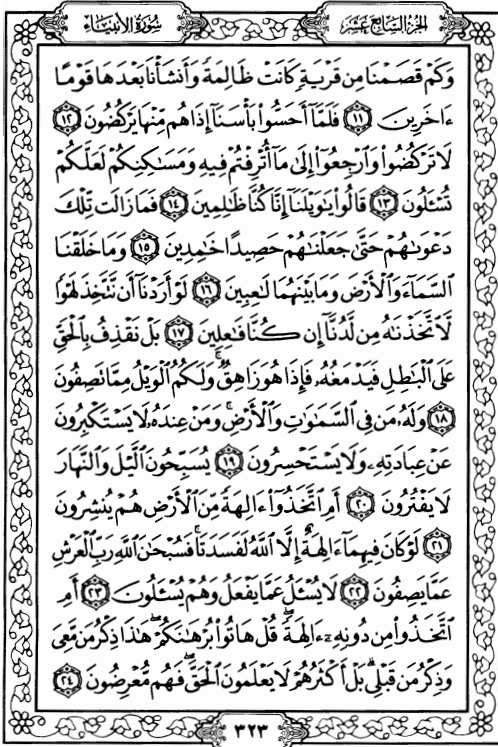 الجزء السابع عشر
سورة الأنبياء
وَكَمْ قَصَمْنَا مِن قَرْيَةٍ كَانَتْ ظَالِمَةً وَأَنشَأْنَا بَعْدَهَا قَوْمًا
ءَاخَرِينَ ﴿١١﴾ فَلَمَّآ أَحَسُّوا۟ بَأْسَنَآ إِذَا هُم مِّنْهَا يَرْكُضُونَ ﴿١٢﴾
لَا تَرْكُضُوا۟ وَٱرْجِعُوٓا۟ إِلَىٰ مَآ أُتْرِفْتُمْ فِيهِ وَمَسَٰكِنِكُمْ لَعَلَّكُمْ
تُسْـَٔلُونَ ﴿١٣﴾ قَالُوا۟ يَٰوَيْلَنَآ إِنَّا كُنَّا ظَٰلِمِينَ ﴿١٤﴾ فَمَا زَالَت تِّلْكَ
دَعْوَىٰهُمْ حَتَّىٰ جَعَلْنَٰهُمْ حَصِيدًا خَٰمِدِينَ ﴿١٥﴾ وَمَا خَلَقْنَا
ٱلسَّمَآءَ وَٱلْأَرْضَ وَمَا بَيْنَهُمَا لَٰعِبِينَ ﴿١٦﴾ لَوْ أَرَدْنَآ أَن نَّتَّخِذَ لَهْوًا
لَّٱتَّخَذْنَٰهُ مِن لَّدُنَّآ إِن كُنَّا فَٰعِلِينَ ﴿١٧﴾ بَلْ نَقْذِفُ بِٱلْحَقِّ
عَلَى ٱلْبَٰطِلِ فَيَدْمَغُهُۥ فَإِذَا هُوَ زَاهِقٌ ۚ وَلَكُمُ ٱلْوَيْلُ مِمَّا تَصِفُونَ
﴿١٨﴾ وَلَهُۥ مَن فِى ٱلسَّمَٰوَٰتِ وَٱلْأَرْضِ ۚ وَمَنْ عِندَهُۥ لَا يَسْتَكْبِرُونَ
عَنْ عِبَادَتِهِۦ وَلَا يَسْتَحْسِرُونَ ﴿١٩﴾ يُسَبِّحُونَ ٱلَّيْلَ وَٱلنَّهَارَ
لَا يَفْتُرُونَ ﴿٢٠﴾ أَمِ ٱتَّخَذُوٓا۟ ءَالِهَةً مِّنَ ٱلْأَرْضِ هُمْ يُنشِرُونَ
﴿٢١﴾ لَوْ كَانَ فِيهِمَآ ءَالِهَةٌ إِلَّا ٱللَّهُ لَفَسَدَتَا ۚ فَسُبْحَٰنَ ٱللَّهِ رَبِّ ٱلْعَرْشِ
عَمَّا يَصِفُونَ ﴿٢٢﴾ لَا يُسْـَٔلُ عَمَّا يَفْعَلُ وَهُمْ يُسْـَٔلُونَ ﴿٢٣﴾ أَمِ
ٱتَّخَذُوا۟ مِن دُونِهِۦٓ ءَالِهَةً ۖ قُلْ هَاتُوا۟ بُرْهَٰنَكُمْ ۖ هَٰذَا ذِكْرُ مَن مَّعِىَ
وَذِكْرُ مَن قَبْلِى ۗ بَلْ أَكْثَرُهُمْ لَا يَعْلَمُونَ ٱلْحَقَّ ۖ فَهُم مُّعْرِضُونَ ﴿٢٤﴾
٣٢٣